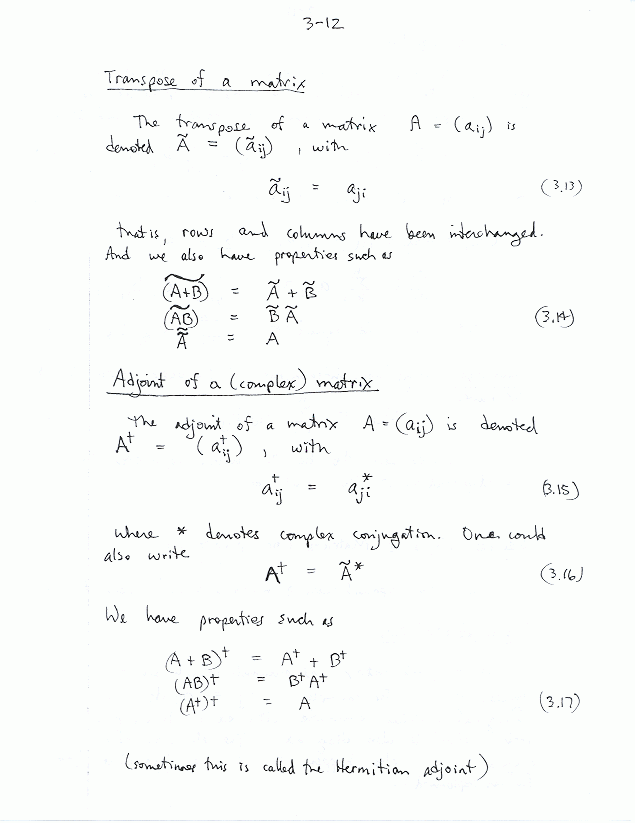 3-12
Transpose of a matrix
The transpose of a matrix A = (aᵢⱼ) is
denoted Ã = (ãᵢⱼ) , with
ãᵢⱼ = aⱼᵢ (3.13)
that is, rows and columns have been interchanged.
And we also have properties such as
(A+B)~ = Ã + B̃
(AB)~ = B̃ Ã (3.14)
Ã~ = A
Adjoint of a (complex) matrix
The adjoint of a matrix A = (aᵢⱼ) is denoted
A† = (a†ᵢⱼ) , with
a†ᵢⱼ = a*ⱼᵢ (3.15)
where * denotes complex conjugation. One could
also write
A† = Ã* (3.16)
We have properties such as
(A + B)† = A† + B†
(AB)† = B† A†
(A†)† = A (3.17)
(sometimes this is called the Hermitian adjoint)